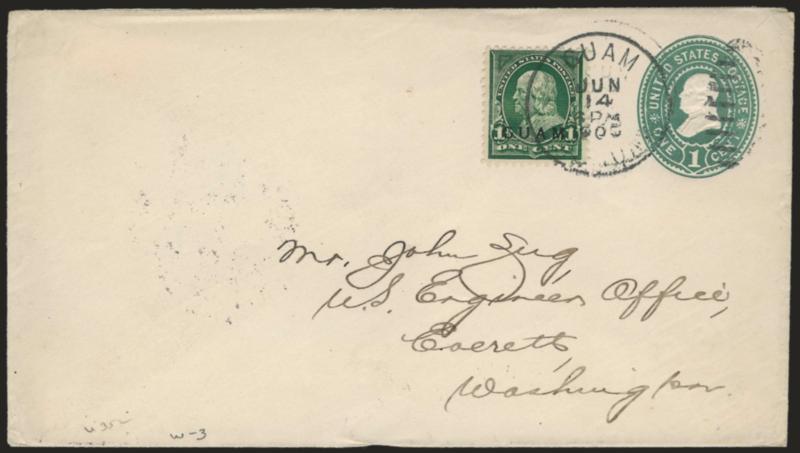 GUAM
JUN
14
6 PM
UNITED STATES POSTAGE
GUAM
1 1
ONE CENT
UNITED STATES POSTAGE
ONE 1 CENT
Mr. John Sug,
U.S. Engineer Office,
Everett,
Washington.
W-3